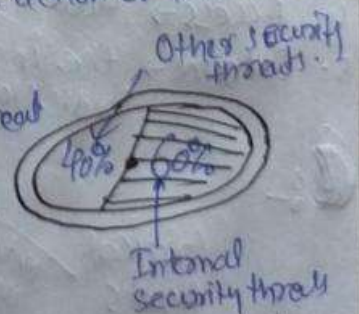 Other security
threats.
40%
60%
Internal
security threats